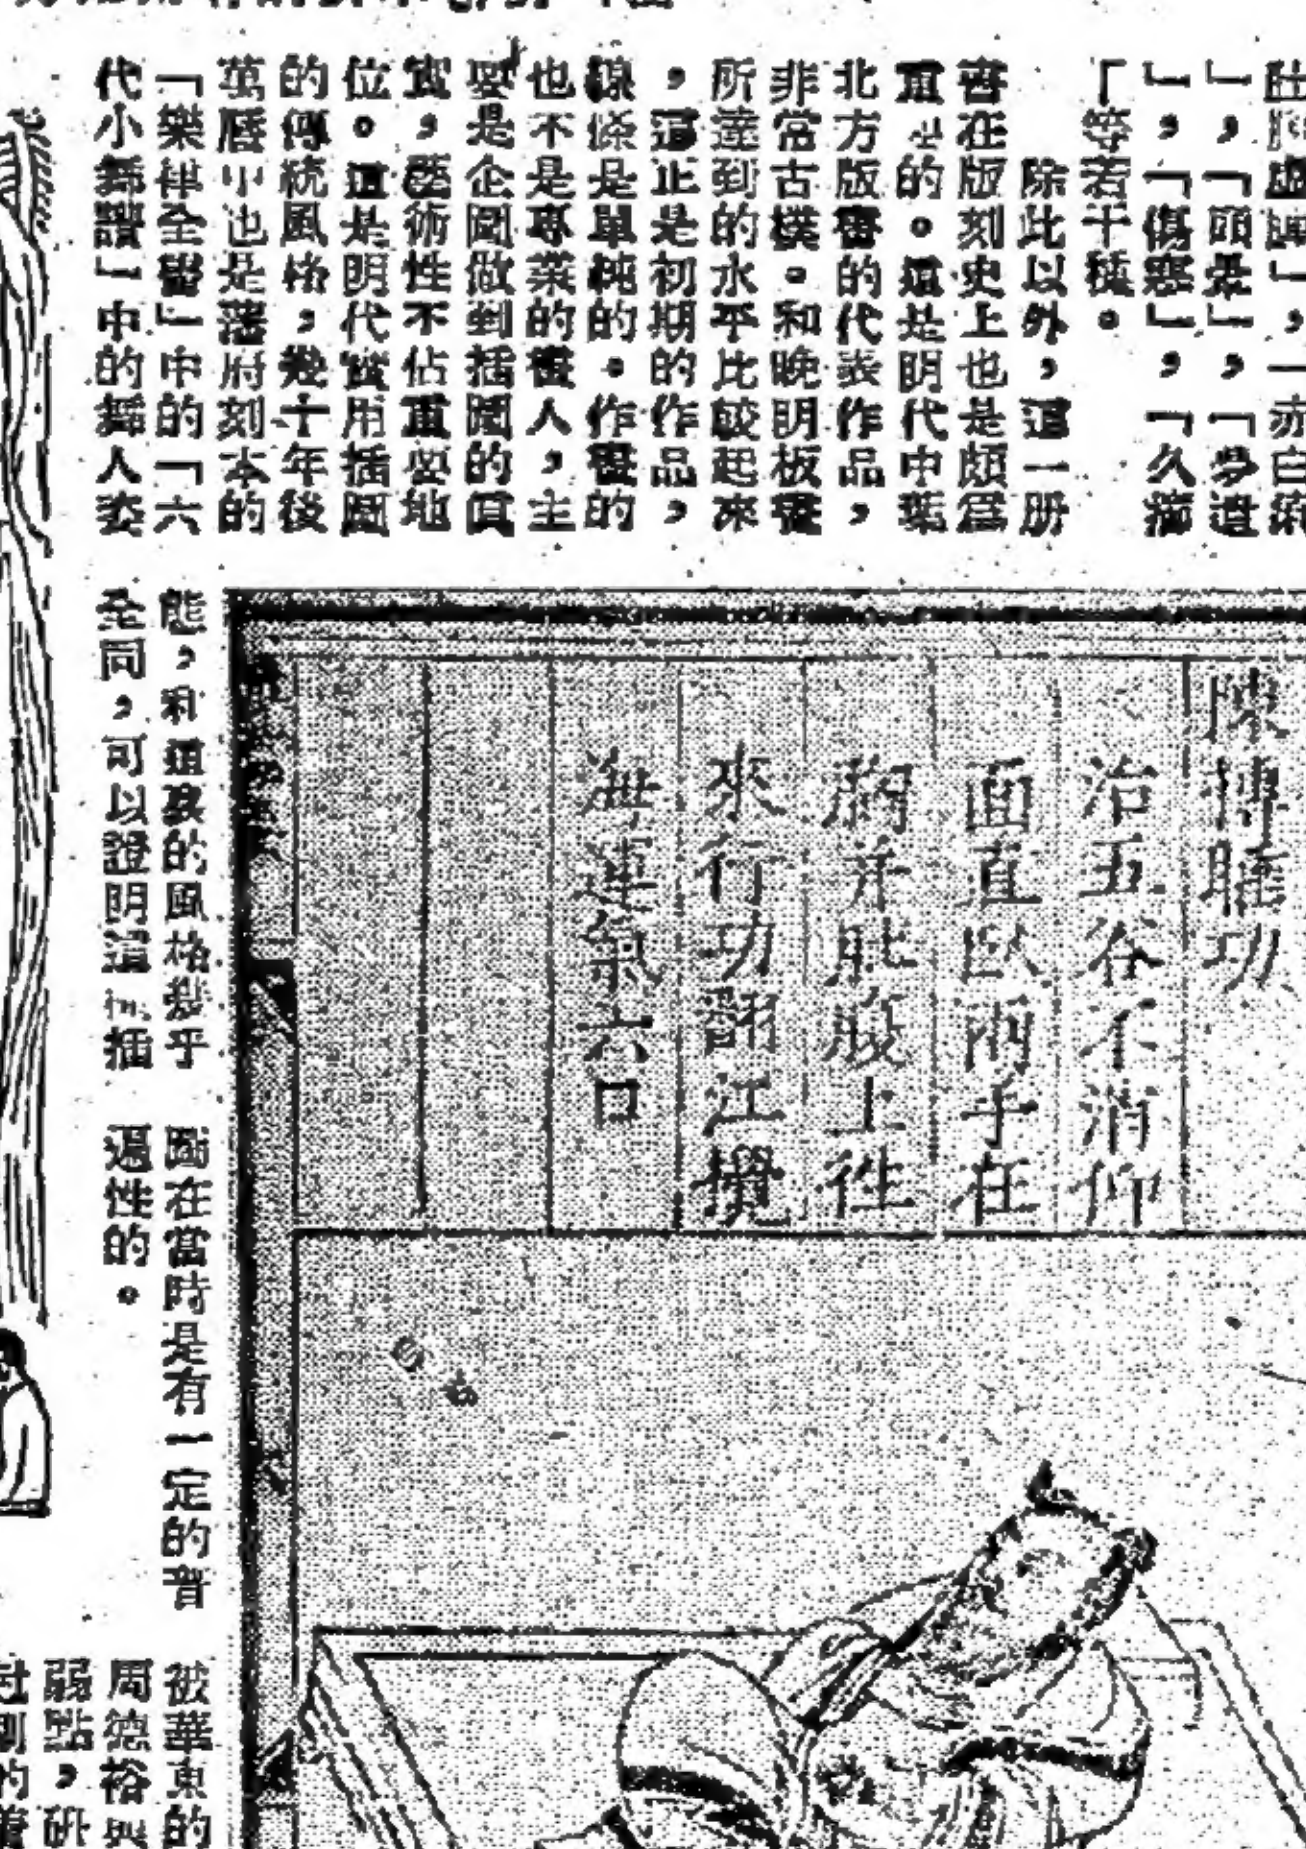 肚腹虛腫」,「赤白痢
」,「頭暈」,「夢遺
」,「傷寒」,「久瀉
」等若干種。
除此以外,這一册
書在版刻史上也是頗爲
重要的。這是明代中葉
北方版畫的代表作品,
非常古樸。和晚明板畫
所達到的水平比較起來
,這正是初期的作品,
線條是單純的。作畫的
也不是專業的畫人,主
要是企圖做到插圖的眞
實,藝術性不佔重要地
位。這是明代實用插圖
的傳統風格,幾十年後
萬曆中也是藩府刻本的
「樂律全書」中的「六
代小舞譜」中的舞人姿
態,和這裏的風格幾乎
全同,可以證明這種插
圖在當時是有一定的普
遍性的。
陳摶睡功
治五谷不消仰
面直臥兩手在
胸并肚腹上往
來行功翻江攪
海運氣六口
被華東的
周德裕與
弱點,砒